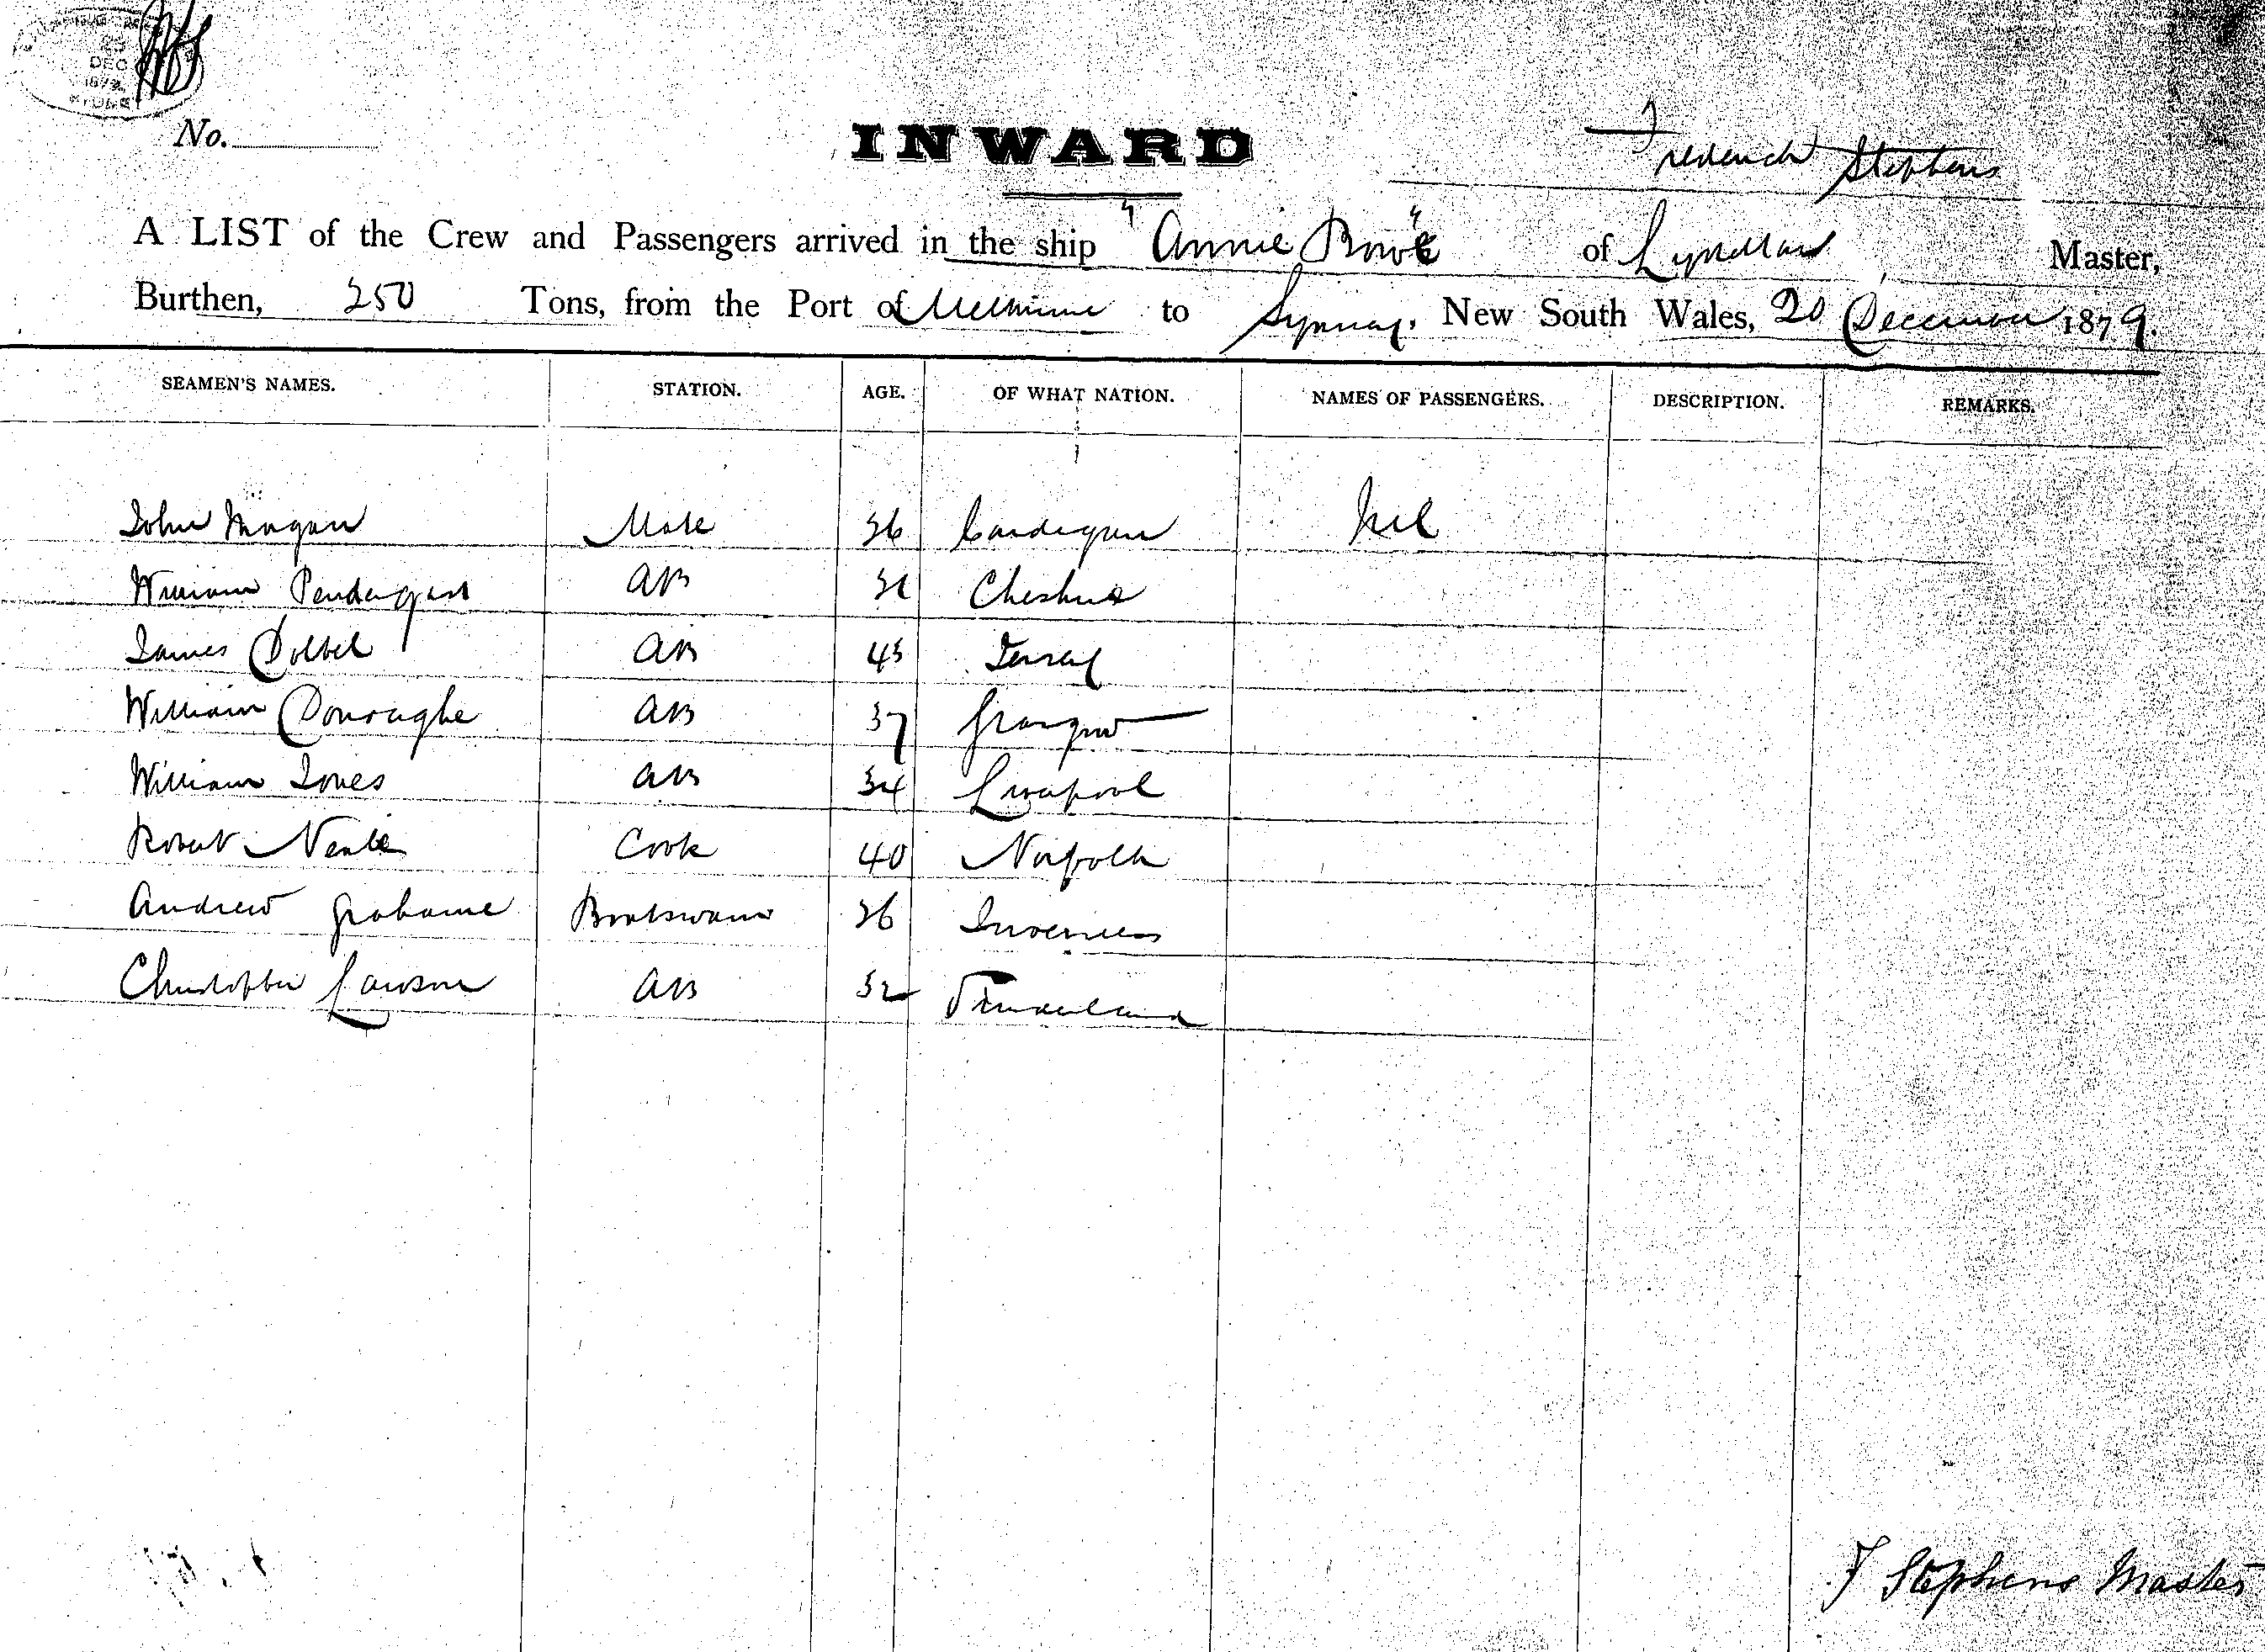 DEC
1879
SYDNEY
No.
INWARD
Frederick Stephens
A LIST of the Crew and Passengers arrived in the ship "Annie Bowe" of Master,
Burthen, 250 Tons, from the Port of Melbourne to Sydney, New South Wales, 20 December 1879.
SEAMEN'S NAMES. STATION. AGE. OF WHAT NATION. NAMES OF PASSENGERS. DESCRIPTION. REMARKS.
John Magan Mate 36 Cardigan Nil
William Pendergast AB Cheshire
James Dolbel AB 45 Jersey
William Donoughe AB 37 Glasgow
William Jones AB 34 Liverpool
Robert Neale Cook 40 Norfolk
Andrew Grahame Boatswain 36 Inverness
Christopher Lawson AB 32 Sunderland
F Stephens Master